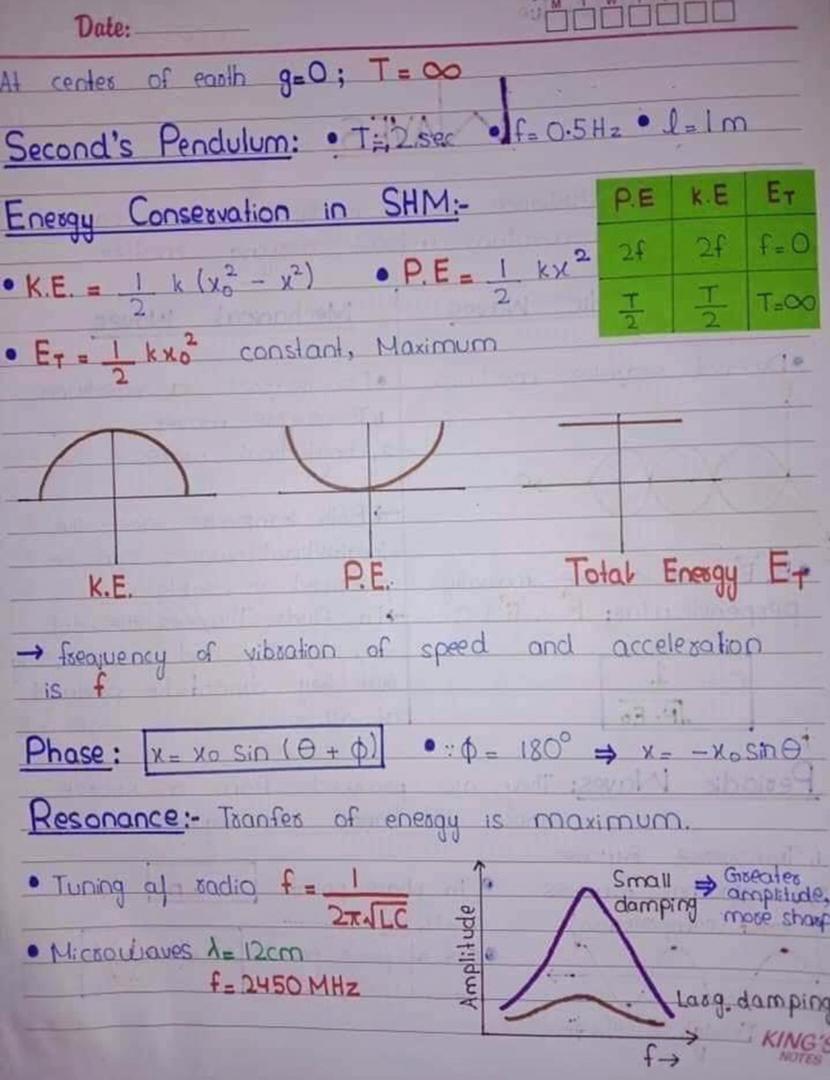 Date:
At center of earth g=0; T = ∞
Second's Pendulum: • T = 2 sec • f = 0.5 Hz • l = 1 m
Energy Conservation in SHM:-
P.E K.E E_T
2f 2f f=0
T/2 T/2 T=∞
• K.E. = 1/2 k (x₀² - x²) • P.E = 1/2 kx²
• E_T = 1/2 kx₀² constant, Maximum
K.E. P.E. Total Energy E_T
→ frequency of vibration of speed and acceleration
is f
Phase: x = x₀ sin (θ + ϕ) • ∵ ϕ = 180° ⇒ x = -x₀ sinθ
Resonance:- Tranfer of energy is maximum.
• Tuning of radio f = 1/2π√LC
• Microwaves λ = 12cm
f = 2450 MHz
Amplitude
Small ⇒ Greater
damping amplitude,
more sharp
Larg. damping
f→
KING'S
NOTES